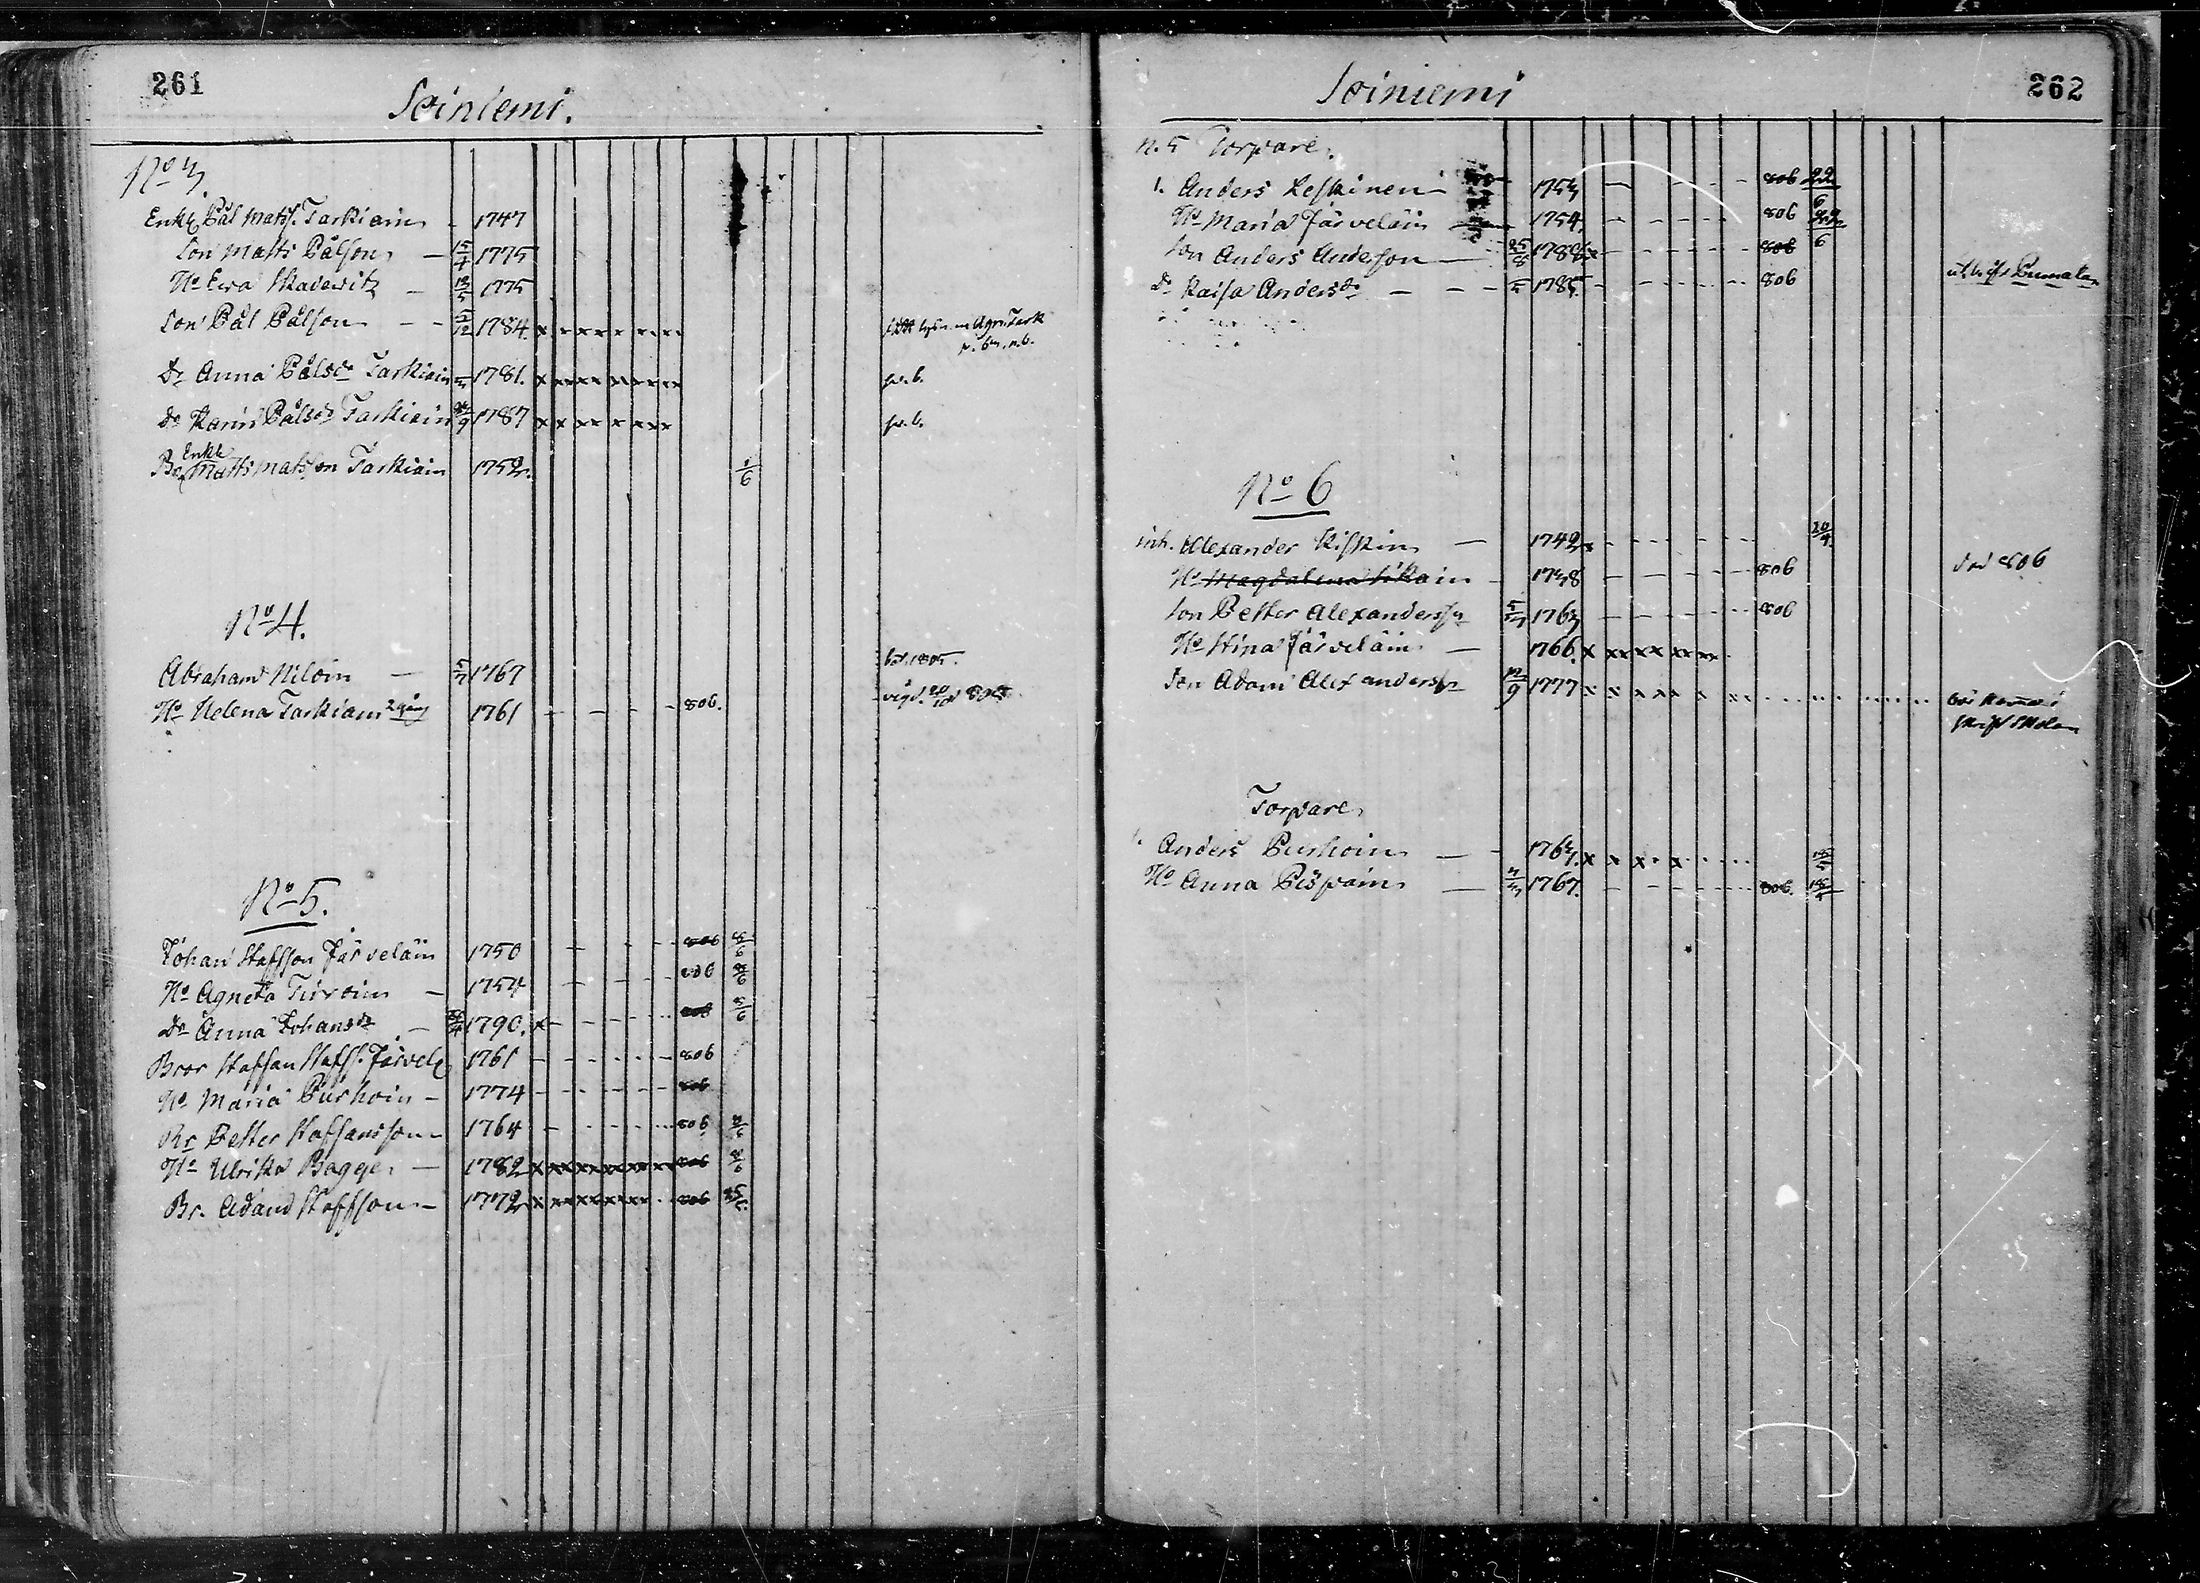 261
Soiniemi.
No 3.
Enkl Pål Matss. Tarkiain - 1747
Son Matts Pålson - 15/4 1775
Hu Ewa Skadewitz - 13/5 1775
Son Pål Pålson - - 5/12 1784 x
Dr Anna Pålsdr Tarkiain 1781. x
sw. b.
Dr Karin Pålsdr Tarkiain /9 1787 x
sw. b.
Enkl
Br Matts Matsson Tarkiain 1752. 1/6
No 4.
Abraham Niloin - 5/7 1767
Hu Helena Tarkiain 2 gång 1761 - - - - 806.
No 5.
Johan Staffson Järveläin 1750 - - - 806 8/6
Hu Agneta Turoin - 1754 - - - 806 8/6
Dr Anna Johansdr - 1790. x - - - 806 8/6
Bror Staffan Staffs. Järvel 1761 - - - - 806
Hu Maria Purhoin - 1774 - - - - 806
Br Petter Staffansson - 1764 - - - - 806 /6
Hu Ulrika Bagge - 1782 x 806 /6
Br. Adam Staffson - 1772 x 806
262
Soiniemi
n. 5 Torpare.
1. Anders Leskinen - 1753 - - - 806 22/6
Hu Maria Järveläin 1754 - - - - 806 22/6
Son Anders Anderson - 25/8 1788 x - - - 806
Dr Kaisa Andersdr - - - 1785. - - - - 806
Pumala
No 6
inh. Alexander Kiskin - 1742 x - - - - 20/4
Hu Magdalena 1738 - - - - 806
död 806
Son Petter Alexanderss 1763 - - - - 806
Hu Stina Järveläin - 1766. x
Son Adam Alexanderss 12/9 1777 x
Torpare
1. Anders Purhoin - - 1763. x x x x 18/4
Hu Anna Pispain - 1767. - - - - 806. 18/4